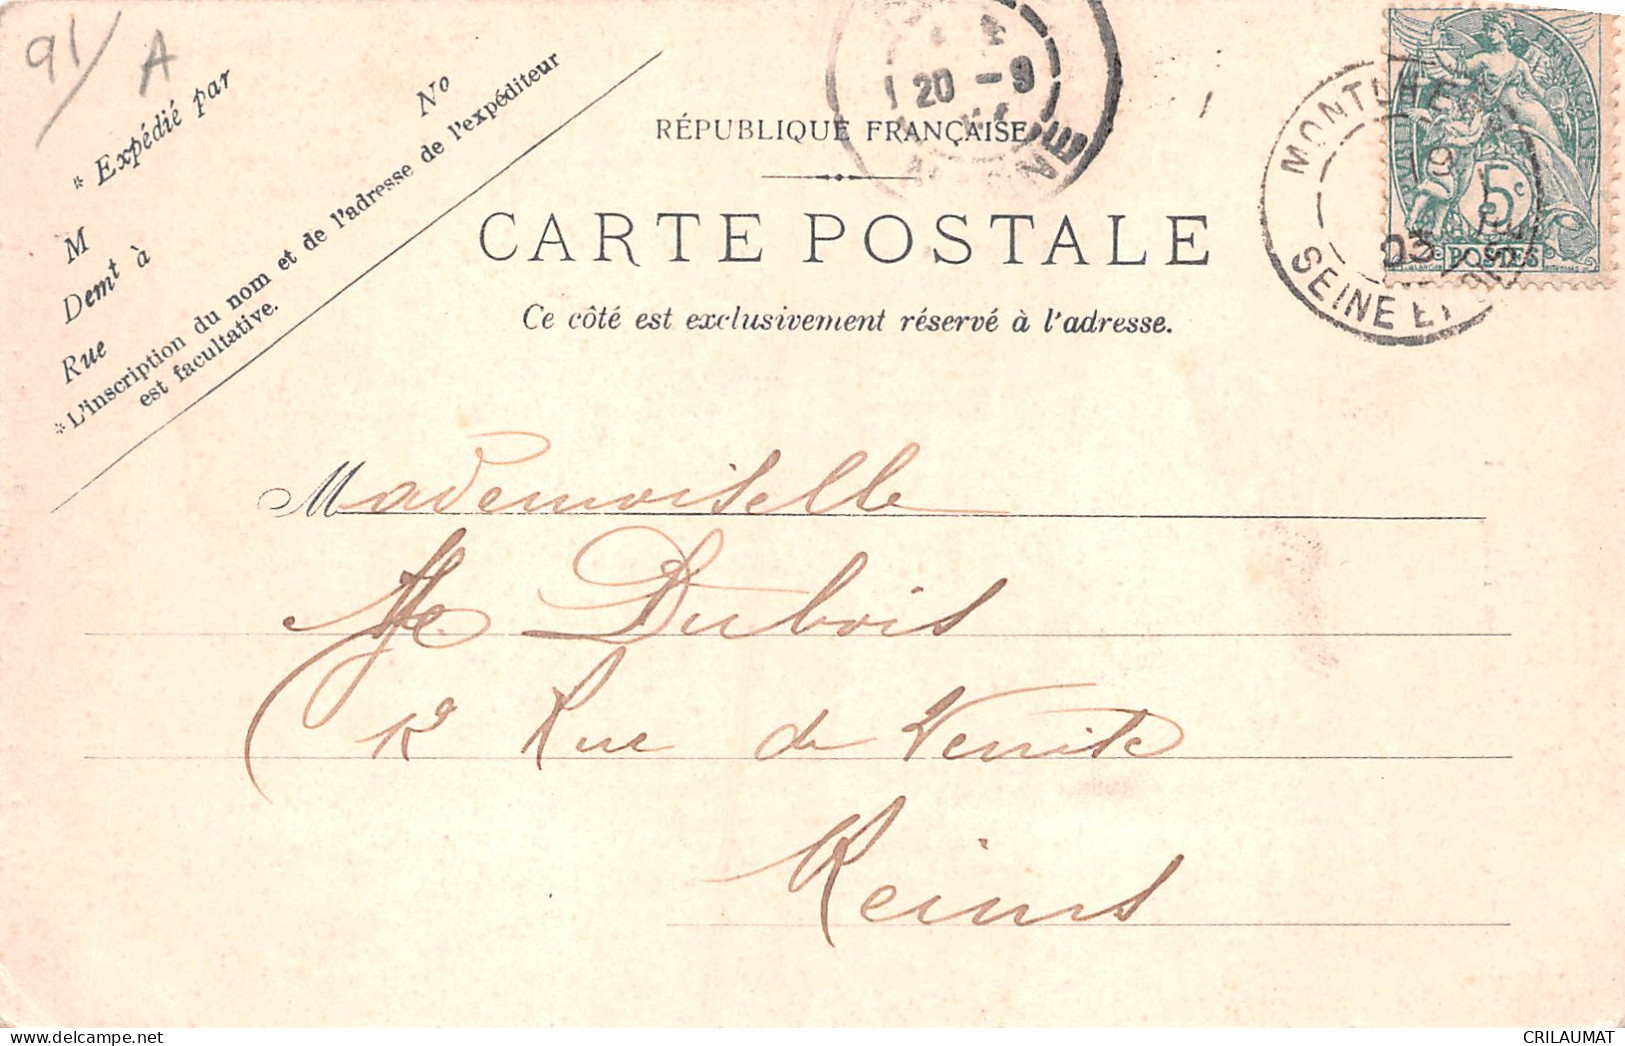 91/ A
* Expédié par
M
Demt à
Rue
No
* L'inscription du nom et de l'adresse de l'expéditeur
est facultative.
20 - 9
RÉPUBLIQUE FRANÇAISE
CARTE POSTALE
Ce côté est exclusivement réservé à l'adresse.
SEINE ET
03
5c
POSTES
Mademoiselle
Dubois
12 Rue de
Reims
CRILAUMAT